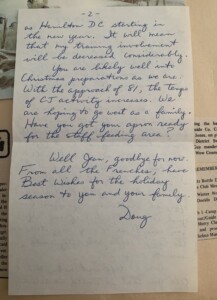 - 2 -
as Hamilton DC starting in
the new year. It will mean
that my training involvement
will be decreased considerably.
You are likely well into
Christmas preparations as we are.
With the approach of 81, the tempo
of CJ activity increases. We
are hoping to go west as a family.
Have you got your apron ready
for the staff feeding area?
Well Gen, goodbye for now.
From all the Frenches, have
Best Wishes for the holiday
season to you and your family.
Doug